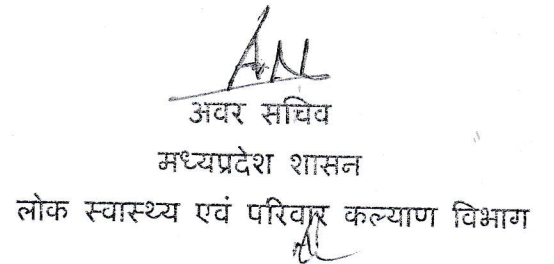 अवर सचिव
मध्यप्रदेश शासन
लोक स्वास्थ्य एवं परिवार कल्याण विभाग